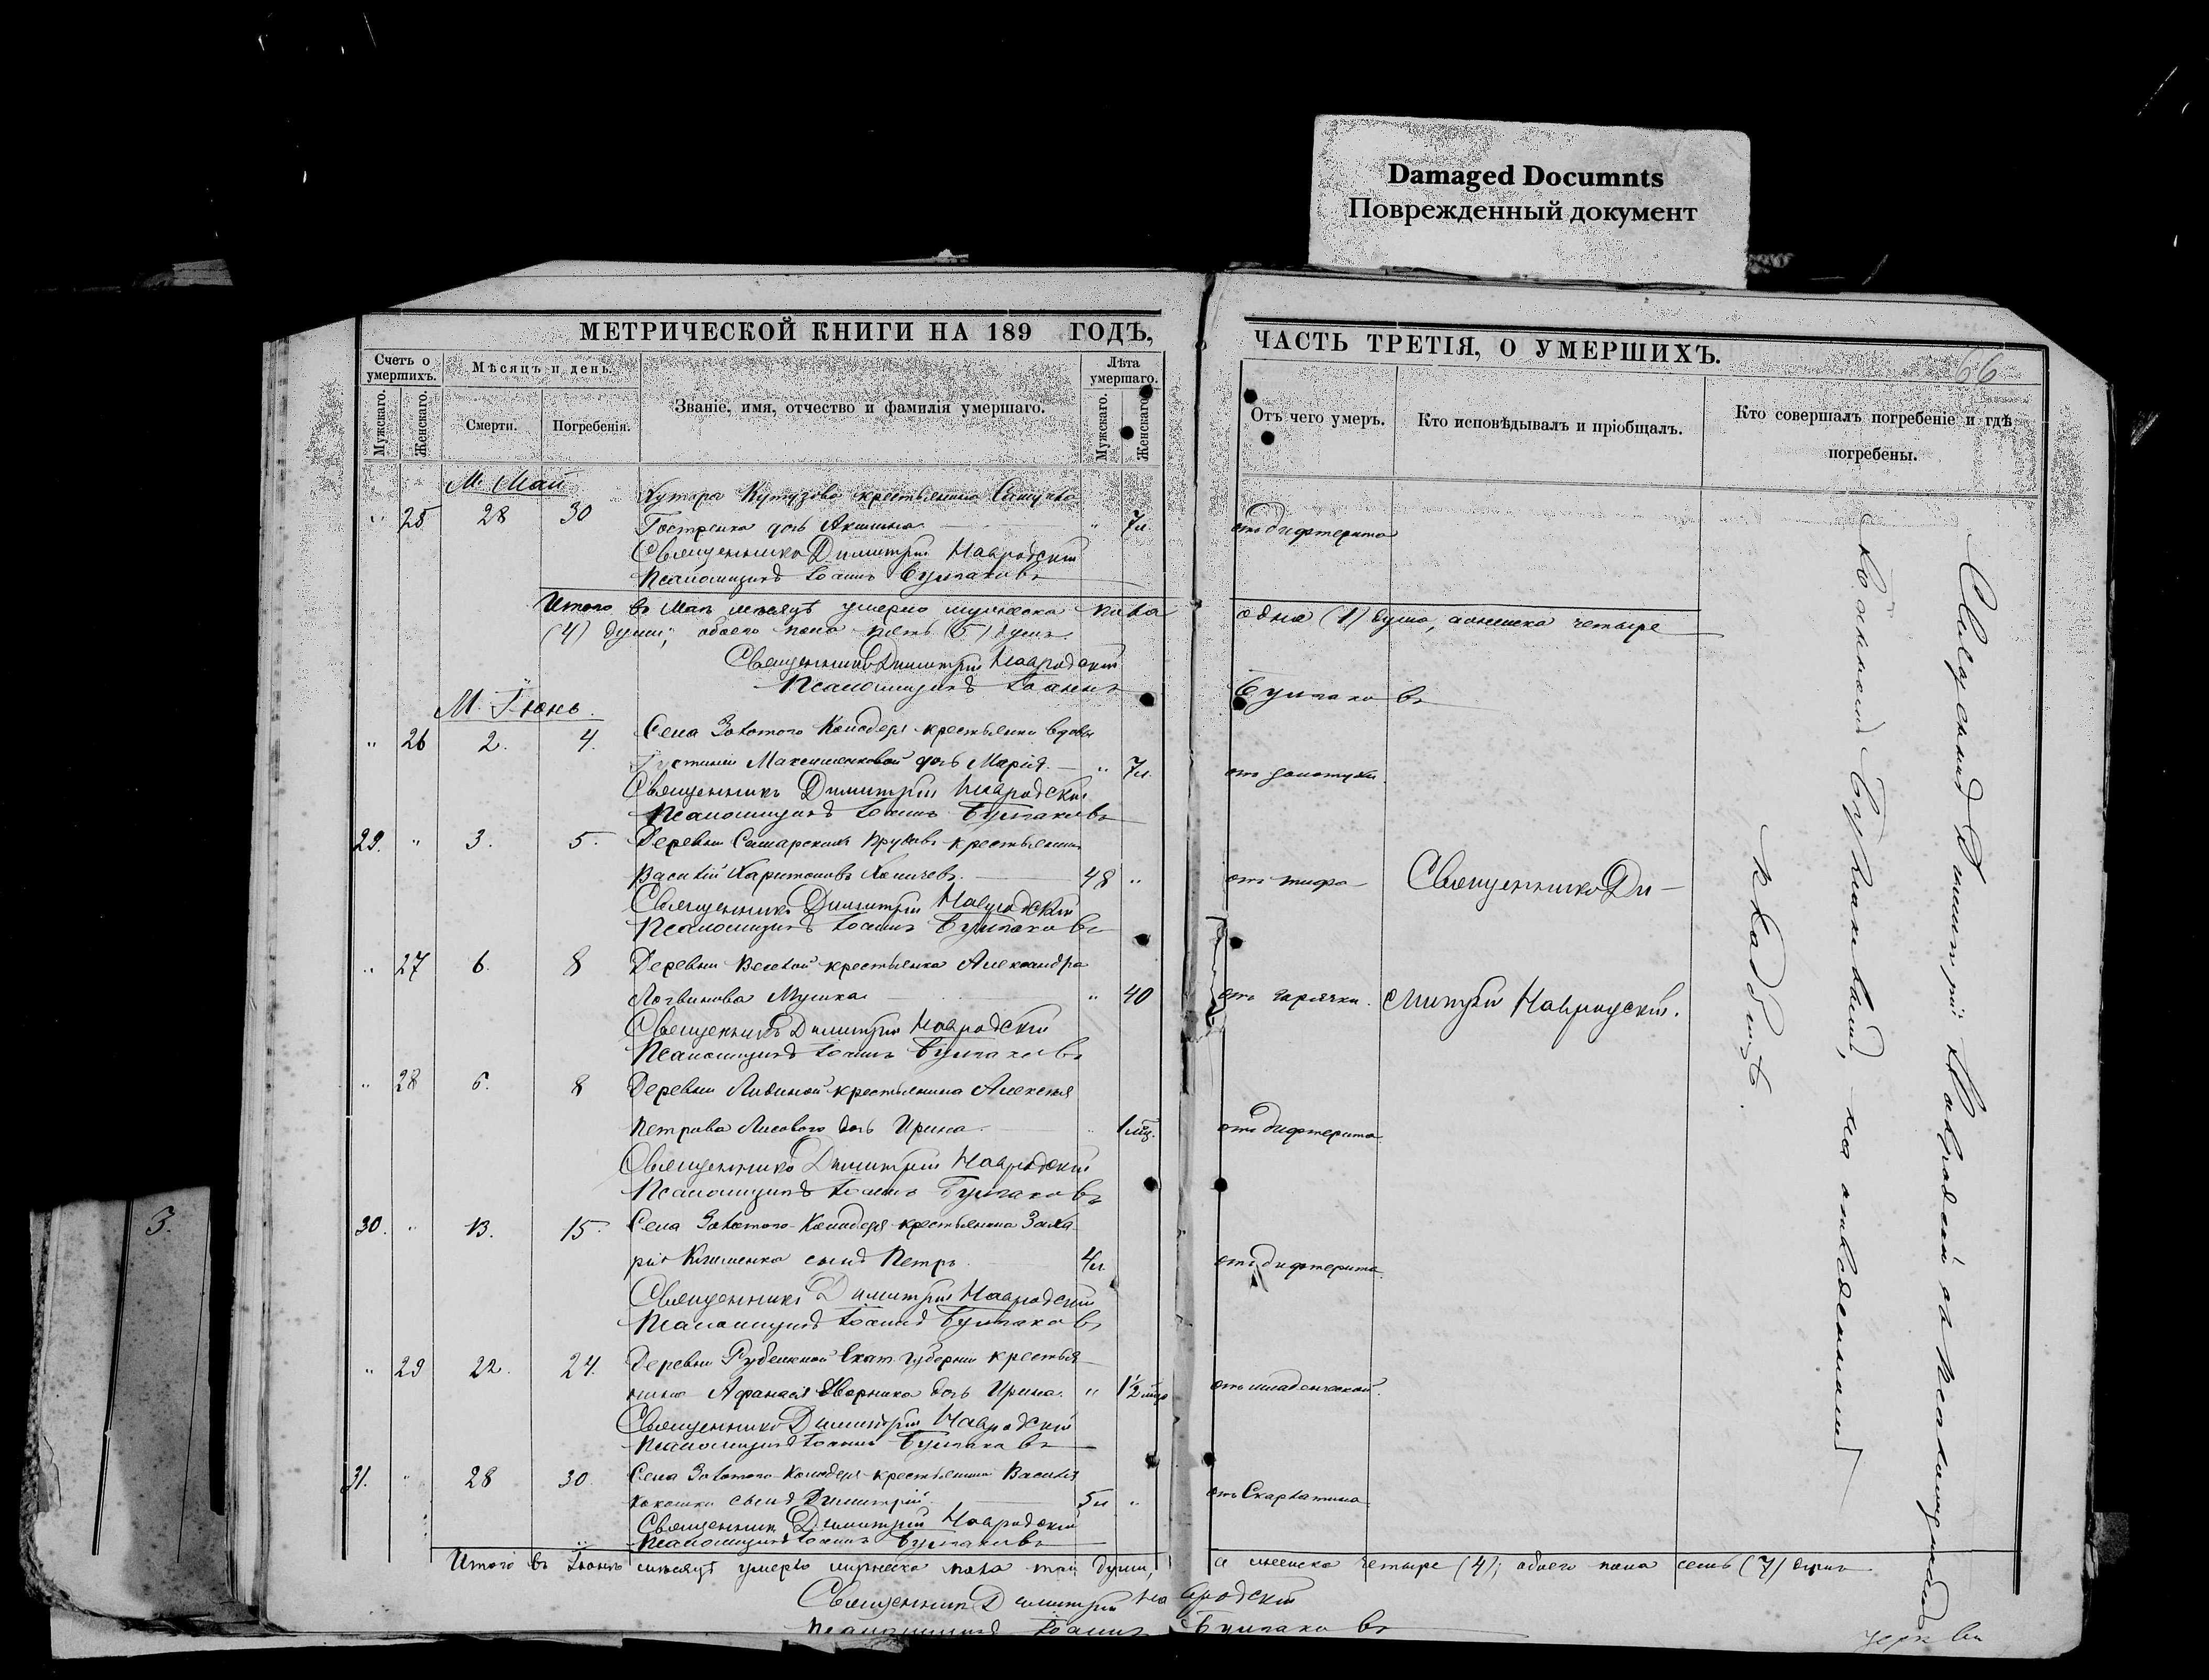 Damaged Documnts
Поврежденный документ
МЕТРИЧЕСКОЙ КНИГИ НА 189 ГОДЪ,
Счетъ о умершихъ.
Мужскаго.
Женскаго.
Мѣсяцъ и день.
Смерти.
Погребенія.
Званіе, имя, отчество и фамилія умершаго.
Лѣта умершаго.
Мужскаго.
Женскаго.
М. Май
Хутора Кутузова крестьянина
" 25 28 30 дочь Акилина " 7л.
Священникъ Димитрій Навродскій
Псаломщикъ Іоаннъ Булгаковъ
Итого въ Маѣ мѣсяцѣ умерло мужеска пола
(4) души; обоего пола пять (5) душъ.
Священникъ Димитрій Навродскій
Псаломщикъ Іоаннъ
М. Іюнь.
Села Золотого Колодезя крестьянки вдовы
" 26 2. 4. дочь Марія. " 7л.
Священникъ Димитрій Навродскій
Псаломщикъ Іоаннъ Булгаковъ
29. " 3. 5. Деревни крестьянинъ
Василій Харитоновъ 48 "
Священникъ Димитрій Навродскій
Псаломщикъ Іоаннъ Булгаковъ
" 27 6. 8 Деревни крестьянка Александра
Логвинова " 40
Священникъ Димитрій Навродскій
Псаломщикъ Іоаннъ Булгаковъ
" 28 6. 8 Деревни крестьянина Алексея
Петрова Лисового дочь Ирина. 1 мц.
Священникъ Димитрій Навродскій
Псаломщикъ Іоаннъ Булгаковъ
30. " 13. 15. Села Золотого Колодезя крестьянина Заха
рія Клименка сынъ Петръ. 4л.
Священникъ Димитрій Навродскій
Псаломщикъ Іоаннъ Булгаковъ
" 29 22. 24. Деревни Рубежной Екат. губерніи крестья
нина Афанасія Дворника дочь Ирина. " 1½
Священникъ Димитрій Навродскій
Псаломщикъ Іоаннъ Булгаковъ
31. " 28 30. Села Золотого Колодезя крестьянина Василія
сынъ Димитрій. 5л "
Священникъ Димитрій Навродскій
Псаломщикъ Іоаннъ Булгаковъ
Итого въ Іюнѣ мѣсяцѣ умерло мужеска пола три души,
Священникъ Димитрій
Псаломщикъ Іоаннъ
ЧАСТЬ ТРЕТІЯ, О УМЕРШИХЪ.
66
Отъ чего умеръ.
Кто исповѣдывалъ и пріобщалъ.
Кто совершалъ погребеніе и гдѣ погребены.
отъ дифтерита
одна (1) душа, а женска четыре
Булгаковъ
отъ золотухи.
отъ тифа Священникъ Ди-
отъ горячки. митрій Навродскій.
отъ дифтерита.
отъ дифтерита.
отъ младенческой.
отъ Скарлатина
а женска четыре (4); обоего пола семь (7) душъ
Навродскій
Булгаковъ
Священникъ Димитрій Навродскій съ Псаломщикомъ
Іоанномъ Булгаковымъ, на отведенномъ
кладбищѣ.
3.